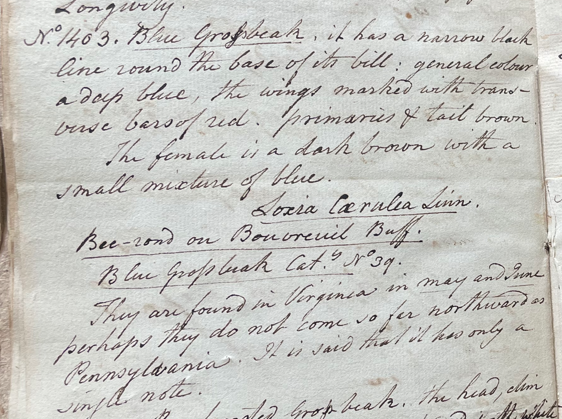 Longevity.
No. 1403. Blue Grosbeak. it has a narrow black
line round the base of its bill: general colour
a deep blue, the wings marked with trans-
verse bars of red. primaries & tail brown.
The female is a dark brown with a
small mixture of blue.
Loxia Cærulea Linn.
Bec-rond ou Bouvreuil Buff.
Blue Grosbeak Cat.s No 39.
They are found in Virginia in may and June
perhaps they do not come so far northward as
Pennsylvania. It is said that it has only a
single note.
Grosbeak. the head, chin
white